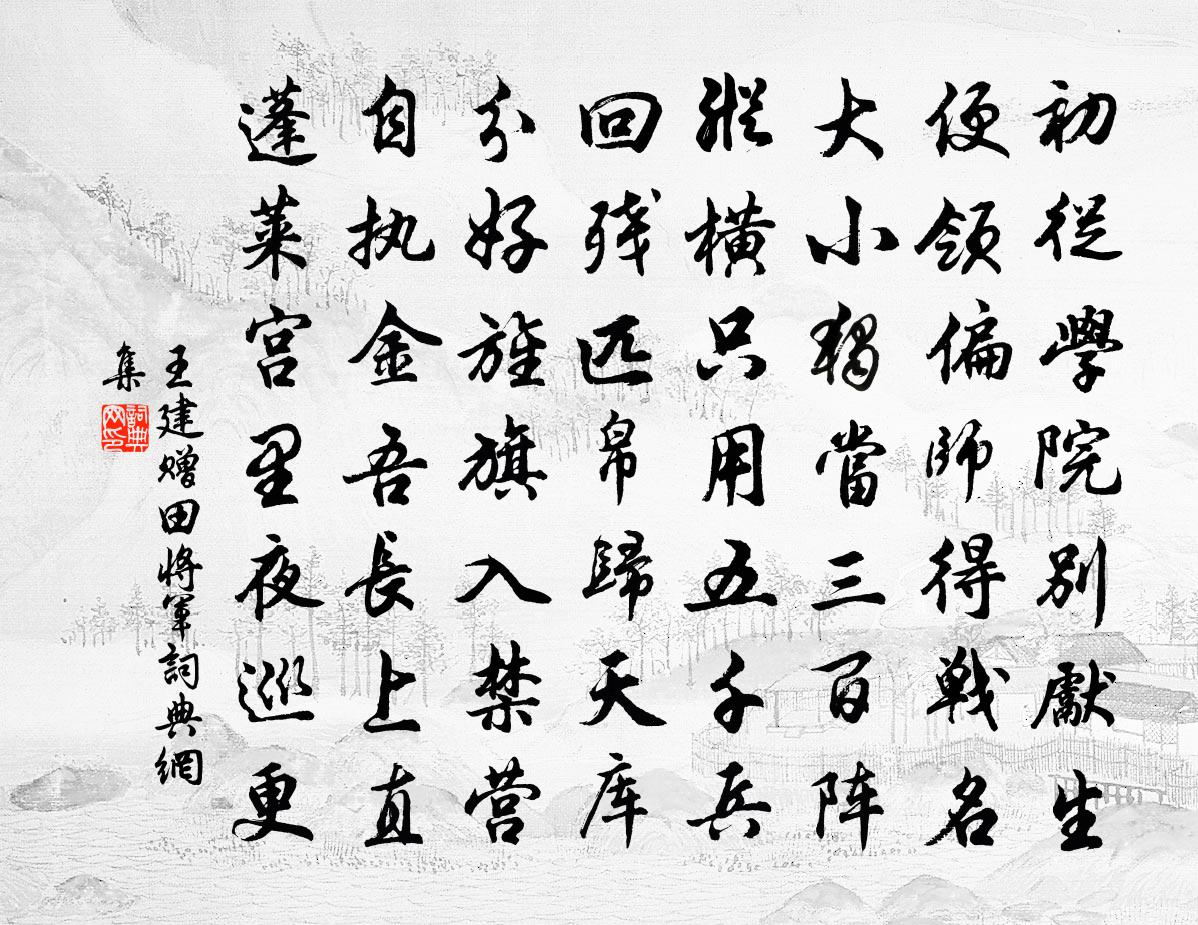 初從學院別獻生
便領偏師得戰名
大小獨當三百阵
縱橫只用五千兵
回残匹帛歸天库
分好旌旗入禁营
自执金吾長上直
蓬莱宫里夜巡更
王建赠田将軍詞典網
集
詞典网印